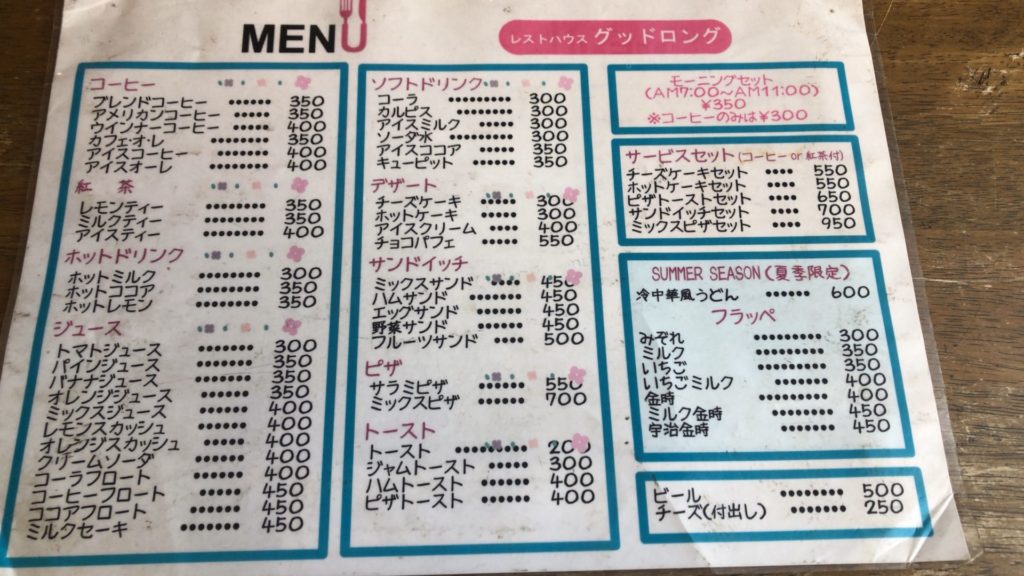 MENU
レストハウス グッドロング
コーヒー
ブレンドコーヒー •••••• 350
アメリカンコーヒー ••••• 350
ウインナーコーヒー ••••• 400
カフェオレ •••••••• 350
アイスコーヒー ••••••• 400
アイスオーレ •••••••• 400
紅茶
レモンティー ••••••••• 350
ミルクティー ••••••••• 350
アイスティー ••••••••• 400
ホットドリンク
ホットミルク ••••••••• 300
ホットココア ••••••••• 350
ホットレモン ••••••••• 350
ジュース
トマトジュース ••••••• 300
パインジュース ••••••• 350
バナナジュース ••••••• 350
オレンジジュース •••••• 350
ミックスジュース •••••• 400
レモンスカッシュ •••••• 400
オレンジスカッシュ ••••• 400
クリームソーダ ••••••• 400
コーラフロート ••••••• 400
コーヒーフロート •••••• 450
ココアフロート ••••••• 450
ミルクセーキ •••••••• 450
ソフトドリンク
コーラ ••••••••••• 300
カルピス ••••••••• 300
アイスミルク ••••••• 300
ソーダ水 ••••••••• 300
アイスココア ••••••• 350
キューピット ••••••• 350
デザート
チーズケーキ •••••• 300
ホットケーキ •••••• 300
アイスクリーム ••••• 400
チョコパフェ •••••• 550
サンドイッチ
ミックスサンド ••••• 450
ハムサンド ••••••• 450
エッグサンド •••••• 450
野菜サンド ••••••• 450
フルーツサンド •••• 500
ピザ
サラミピザ ••••••• 550
ミックスピザ •••••• 700
トースト
トースト •••••••••• 200
ジャムトースト •••••• 300
ハムトースト ••••••• 400
ピザトースト ••••••• 400
モーニングセット
(AM7:00~AM11:00)
¥350
※コーヒーのみは¥300
サービスセット(コーヒー or 紅茶付)
チーズケーキセット •••• 550
ホットケーキセット •••• 550
ピザトーストセット •••• 650
サンドイッチセット •••• 700
ミックスピザセット •••• 950
SUMMER SEASON(夏季限定)
冷中華風うどん •••••• 600
フラッペ
みぞれ ••••••••• 300
ミルク ••••••••• 350
いちご ••••••••• 350
いちごミルク •••••• 400
金時 •••••••••• 400
ミルク金時 ••••••• 450
宇治金時 •••••••• 450
ビール •••••••• 500
チーズ(付出し) ••••• 250